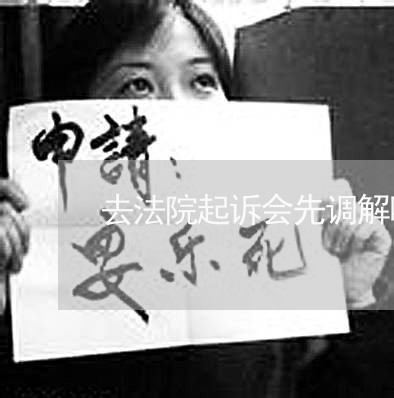 申請：
去法院起诉会先调解
乐死